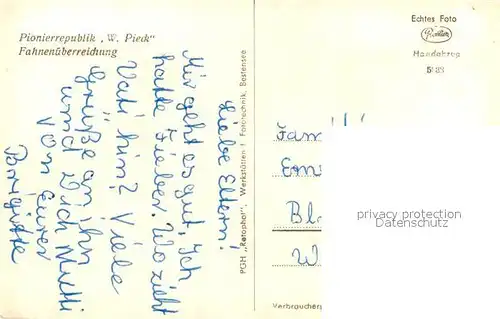 Pionierrepublik „W. Pieck"
Fahnenüberreichung
Liebe Eltern!
Mir geht es gut, Ich
hatte Fieber. Wo zieht
Vati hin? Viele
Grüße an ihn
und Dich Mutti
von Eurer
Brigitte
PGH „Rotophot", Werkstätten f. Fototechnik, Bestensee
Echtes Foto
Handabzug
Fam
Bl
W
privacy protection
Datenschutz
Verbraucherp